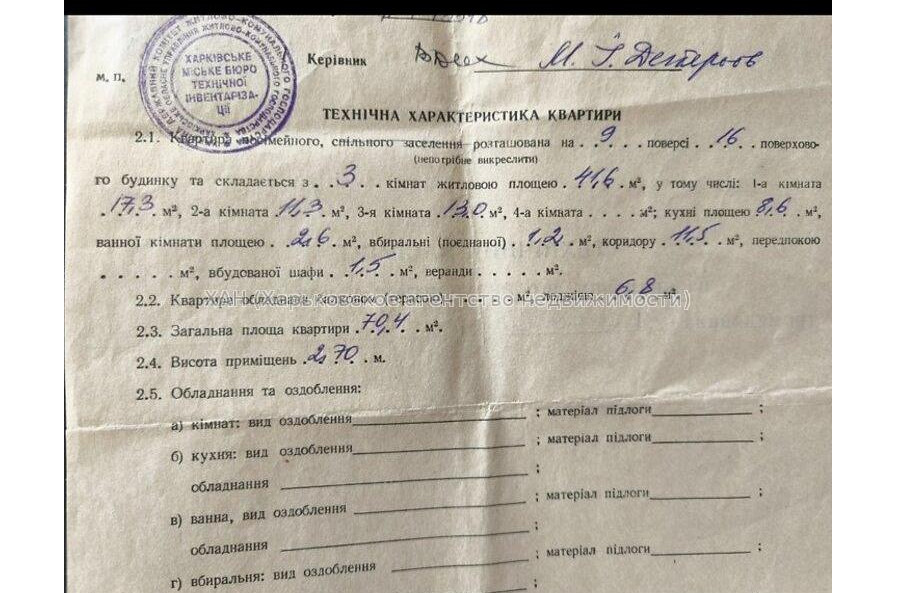 ДЕРЖАВНИЙ КОМІТЕТ ЖИТЛОВО-КОМУНАЛЬНОГО ГОСПОДАРСТВА
ХАРКІВСЬКЕ
МІСЬКЕ БЮРО
ТЕХНІЧНОЇ
ІНВЕНТАРІЗА-
ЦІЇ
м. п.
Керівник М. І.
ТЕХНІЧНА ХАРАКТЕРИСТИКА КВАРТИРИ
2.1. Квартира посімейного, спільного заселення розташована на 9 поверсі 16 поверхово-
(непотрібне викреслити)
го будинку та складається з 3 кімнат житловою площею 41,6 м², у тому числі: 1-а кімната
17,3 м², 2-а кімната 11,3 м², 3-я кімната 13,0 м², 4-а кімната . . . . м²; кухні площею 8,6 м²,
ванної кімнати площею 2,6 м², вбиральні (поєднаної) 1,2 м², коридору 11,5 м², передпокою
. . . . . м², вбудованої шафи 1,5 м², веранди . . . . . м².
2.2. Квартира обладнана балконом (терасою) . . . м², лоджією 6,8 м²
ХАН (Харьковское агентство недвижимости)
2.3. Загальна площа квартири 70,4 м².
2.4. Висота приміщень 2,70 м.
2.5. Обладнання та оздоблення:
а) кімнат: вид оздоблення ; матеріал підлоги ;
б) кухня: вид оздоблення ; матеріал підлоги ;
обладнання ;
в) ванна, вид оздоблення ; матеріал підлоги ;
обладнання ;
г) вбиральня: вид оздоблення ; матеріал підлоги ;
;